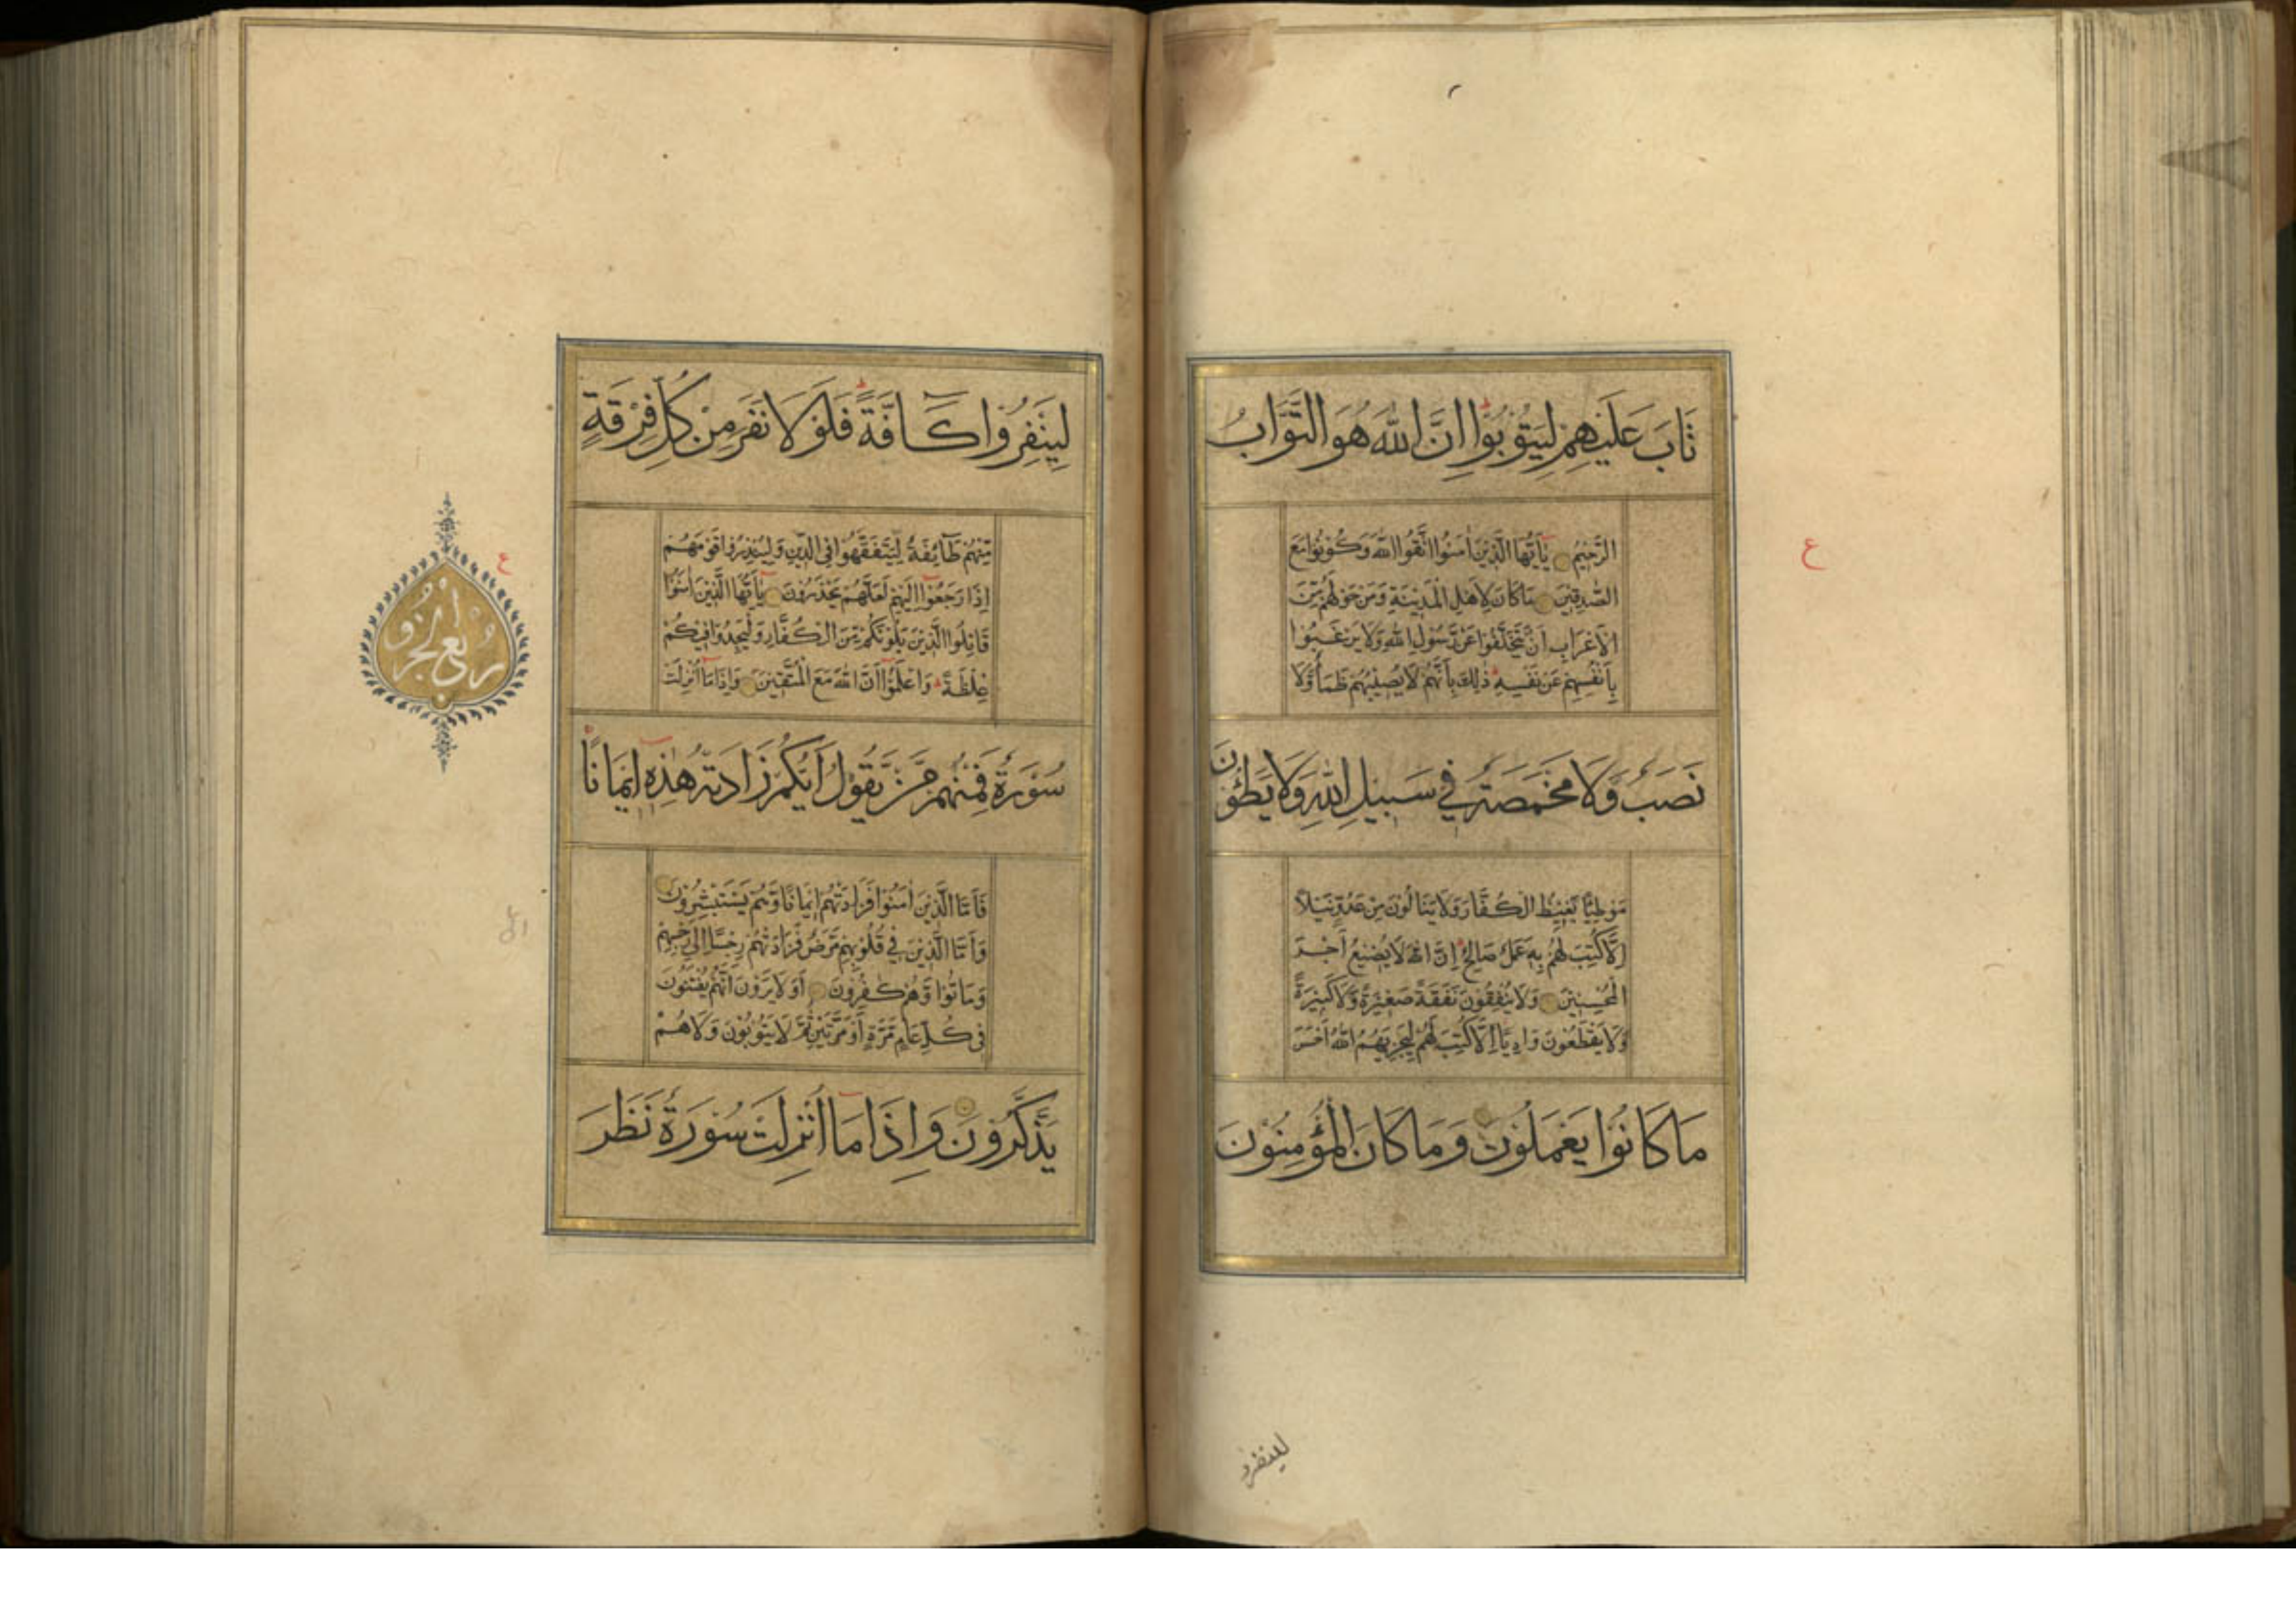 ع
ثَابَ عَلَيْهِمْ لِيَتُوبُوا اِنَّ اللّٰهَ هُوَ التَّوَّابُ
الرَّحِيْمُ يٰاَيُّهَا الَّذِيْنَ اٰمَنُوا اتَّقُوا اللّٰهَ وَكُوْنُوْا مَعَ
الصّٰدِقِيْنَ مَا كَانَ لِاَهْلِ الْمَدِيْنَةِ وَمَنْ حَوْلَهُمْ مِنَ
الْاَعْرَابِ اَنْ يَتَخَلَّفُوْا عَنْ رَسُوْلِ اللّٰهِ وَلَا يَرْغَبُوْا
بِاَنْفُسِهِمْ عَنْ نَفْسِهٖ ذٰلِكَ بِاَنَّهُمْ لَا يُصِيْبُهُمْ ظَمَأٌ وَلَا
نَصَبٌ وَّلَا مَخْمَصَةٌ فِي سَبِيْلِ اللّٰهِ وَلَا يَطَؤُنَ
مَوْطِئًا يَّغِيْظُ الْكُفَّارَ وَلَا يَنَالُوْنَ مِنْ عَدُوٍّ نَيْلًا
اِلَّا كُتِبَ لَهُمْ بِهٖ عَمَلٌ صَالِحٌ اِنَّ اللّٰهَ لَا يُضِيْعُ اَجْرَ
الْمُحْسِنِيْنَ وَلَا يُنْفِقُوْنَ نَفَقَةً صَغِيْرَةً وَّلَا كَبِيْرَةً
وَّلَا يَقْطَعُوْنَ وَادِيًا اِلَّا كُتِبَ لَهُمْ لِيَجْزِيَهُمُ اللّٰهُ اَحْسَنَ
مَا كَانُوْا يَعْمَلُوْنَ وَمَا كَانَ الْمُؤْمِنُوْنَ
لينفرو
لِيَنْفِرُوْا كَآفَّةً فَلَوْلَا نَفَرَ مِنْ كُلِّ فِرْقَةٍ
مِّنْهُمْ طَآئِفَةٌ لِّيَتَفَقَّهُوْا فِي الدِّيْنِ وَلِيُنْذِرُوْا قَوْمَهُمْ
اِذَا رَجَعُوْا اِلَيْهِمْ لَعَلَّهُمْ يَحْذَرُوْنَ يٰاَيُّهَا الَّذِيْنَ اٰمَنُوْا
قَاتِلُوا الَّذِيْنَ يَلُوْنَكُمْ مِّنَ الْكُفَّارِ وَلْيَجِدُوْا فِيْكُمْ
غِلْظَةً وَاعْلَمُوْا اَنَّ اللّٰهَ مَعَ الْمُتَّقِيْنَ وَاِذَا مَا اُنْزِلَتْ
سُوْرَةٌ فَمِنْهُمْ مَّنْ يَّقُوْلُ اَيُّكُمْ زَادَتْهُ هٰذِهٖ اِيْمَانًا
فَاَمَّا الَّذِيْنَ اٰمَنُوْا فَزَادَتْهُمْ اِيْمَانًا وَّهُمْ يَسْتَبْشِرُوْنَ
وَاَمَّا الَّذِيْنَ فِي قُلُوْبِهِمْ مَّرَضٌ فَزَادَتْهُمْ رِجْسًا اِلٰى رِجْسِهِمْ
وَمَاتُوْا وَهُمْ كٰفِرُوْنَ اَوَلَا يَرَوْنَ اَنَّهُمْ يُفْتَنُوْنَ
فِي كُلِّ عَامٍ مَّرَّةً اَوْ مَرَّتَيْنِ ثُمَّ لَا يَتُوْبُوْنَ وَلَا هُمْ
يَذَّكَّرُوْنَ وَاِذَا مَا اُنْزِلَتْ سُوْرَةٌ نَظَرَ
ع
رُبْعُ الْجُزْو